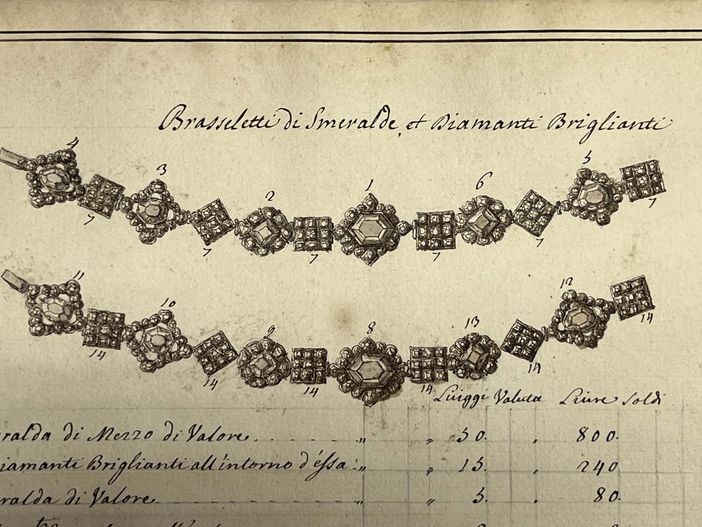 Brasseletti di Smeralde, et Diamanti Briglianti
4 3 2 1 6 5
7 7 7 7 7 7
11 10 9 8 13 12
14 14 14 14 14 14
Luiggi Valuta Liure Soldi
ralda di Mezzo di Valore " " 50. " 800.
iamanti Briglianti all'intorno d'éssa: " " 15. " 240
ralda di Valore " " 5. " 80.